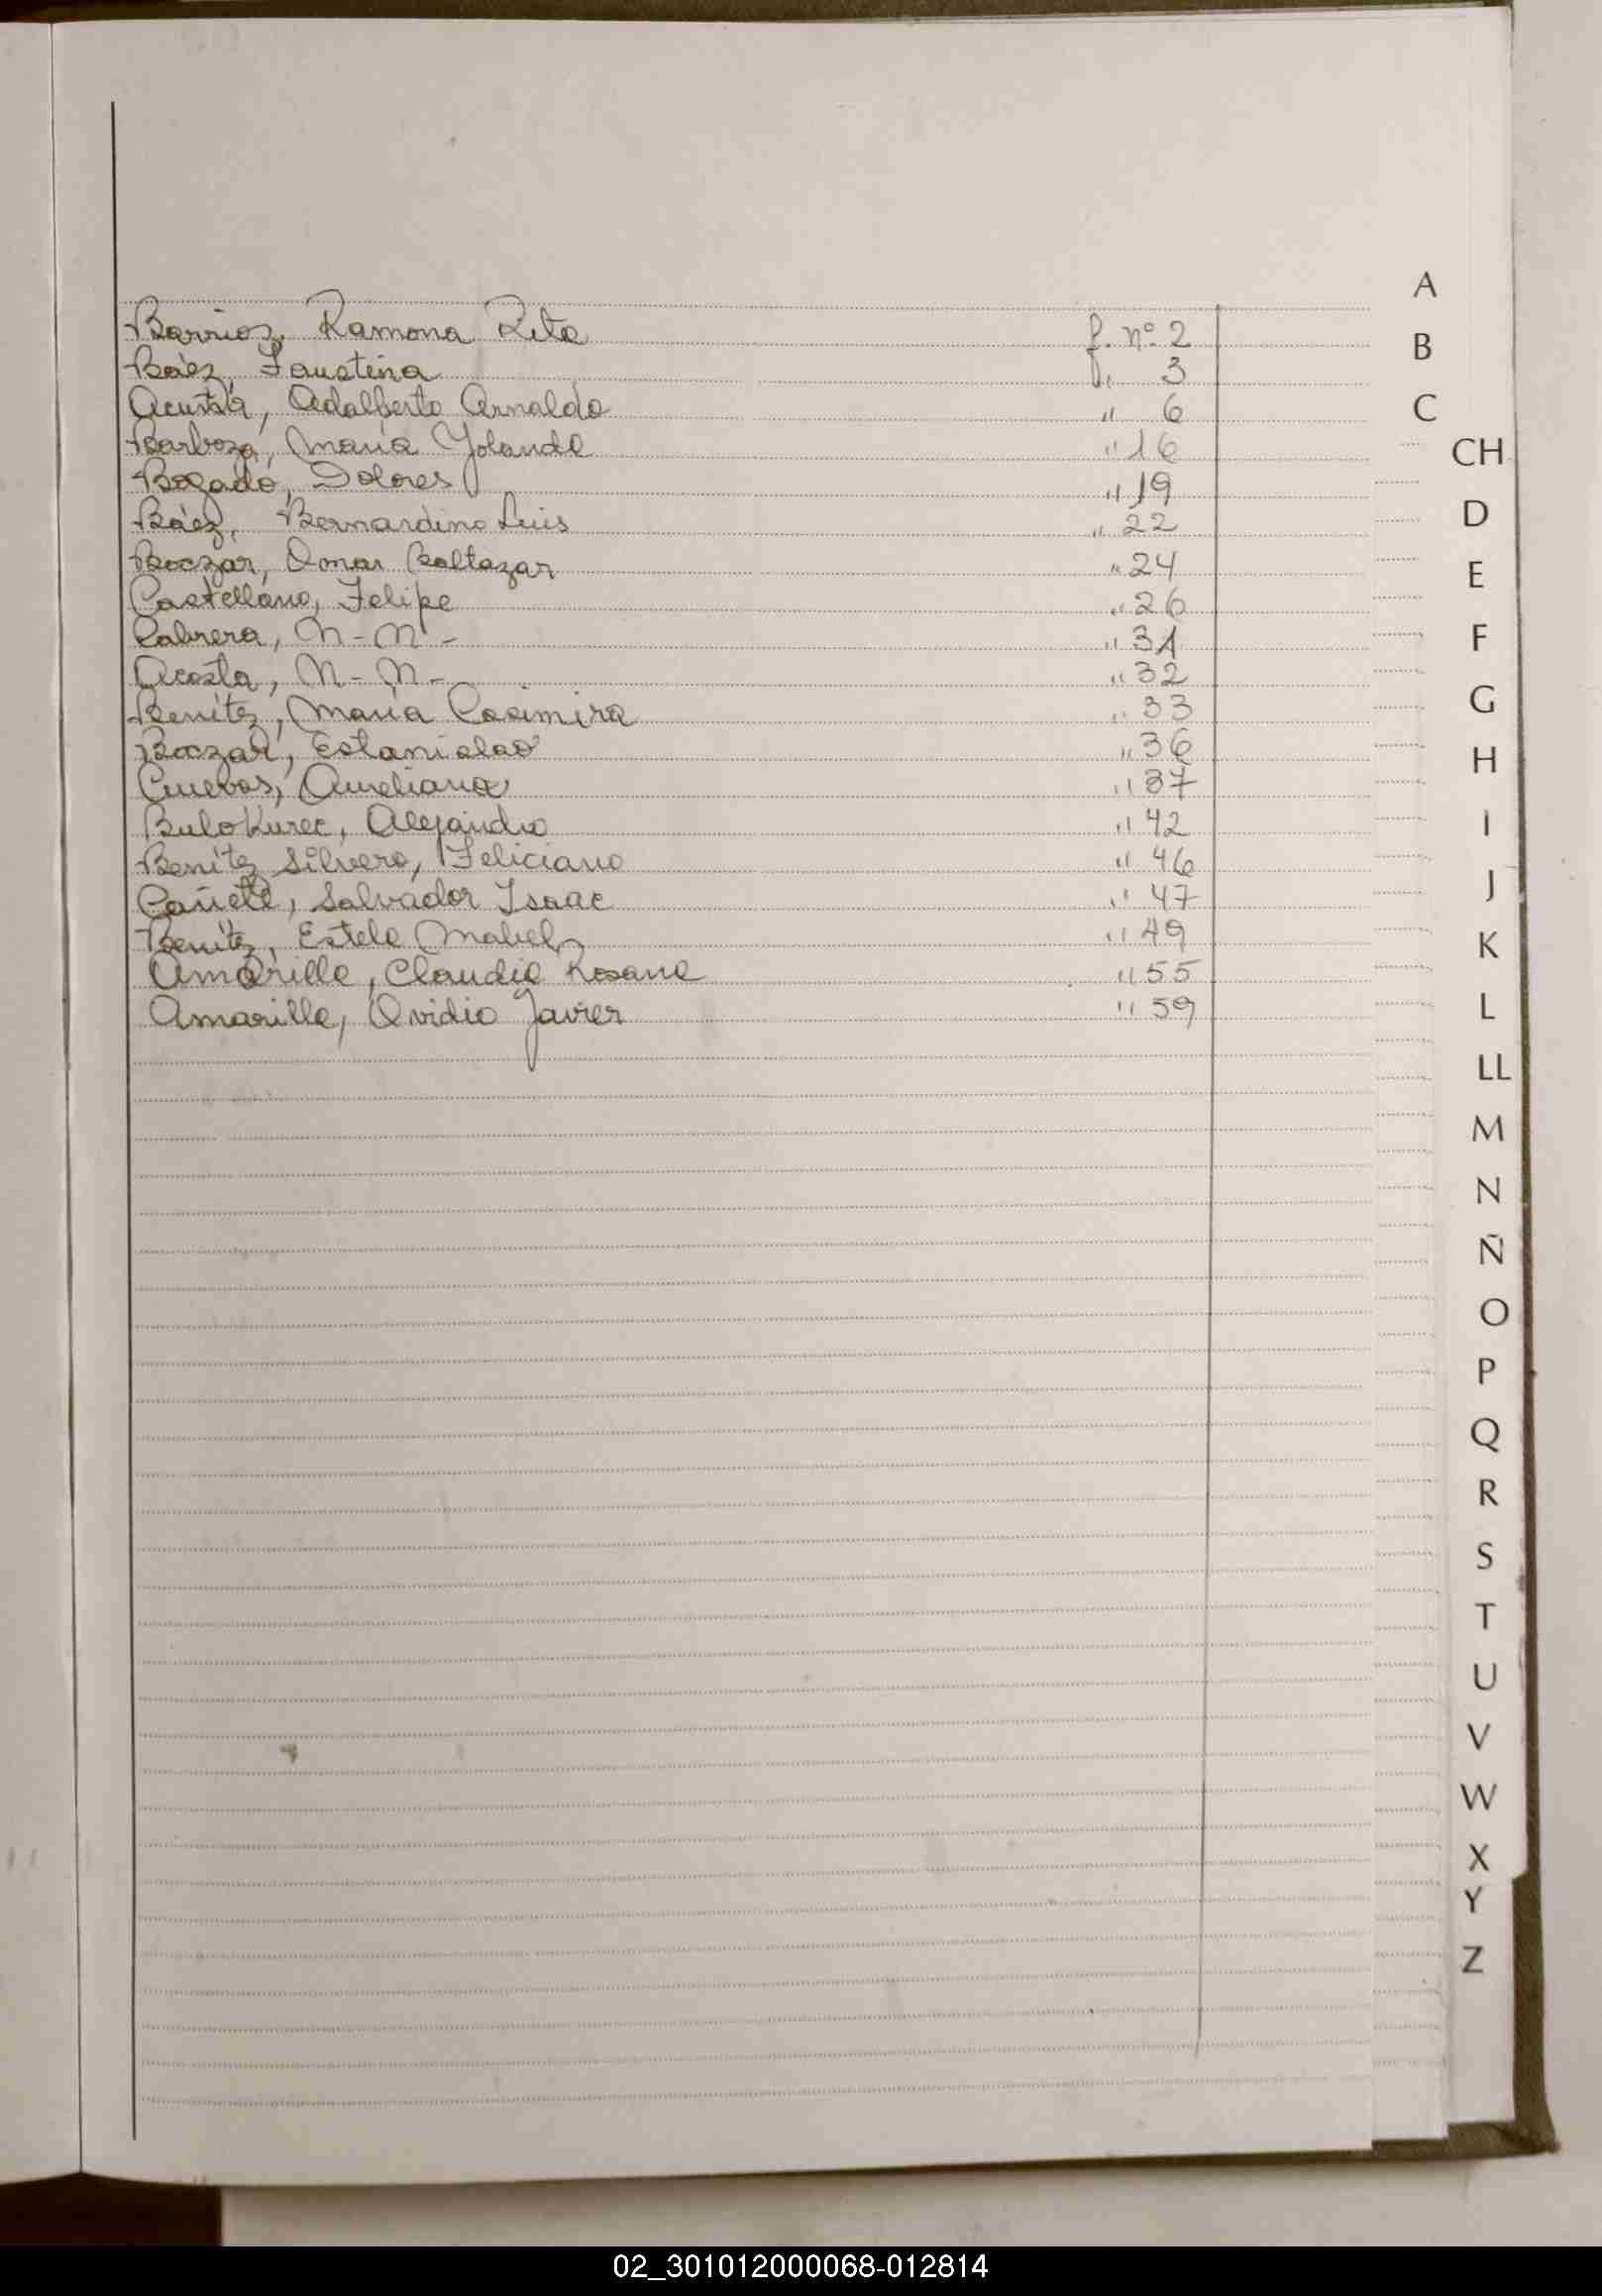 Barrios, Ramona Rita f. nº 2
Báez, Faustina f. 3
Acuña, Adalberto Arnaldo " 6
Barboza, María Yolanda " 16
Bogado, Dolores " 19
Báez, Bernardino Luis " 22
Boczar, Omar Baltazar " 24
Castellano, Felipe " 26
Cabrera, N-N- " 31
Acosta, N-N- " 32
Benítez, María Casimira " 33
Boczar, Estanislao " 36
Cuevas, Aureliana " 37
Bulokurec, Alejandro " 42
Benítez Silvero, Feliciano " 46
Cañete, Salvador Isaac " 47
Benítez, Estela Mabel " 49
Amarilla, Claudia Rosana " 55
Amarilla, Ovidio Javier " 59
A
B
C
CH
D
E
F
G
H
I
J
K
L
LL
M
N
Ñ
O
P
Q
R
S
T
U
V
W
X
Y
Z
02_301012000068-012814